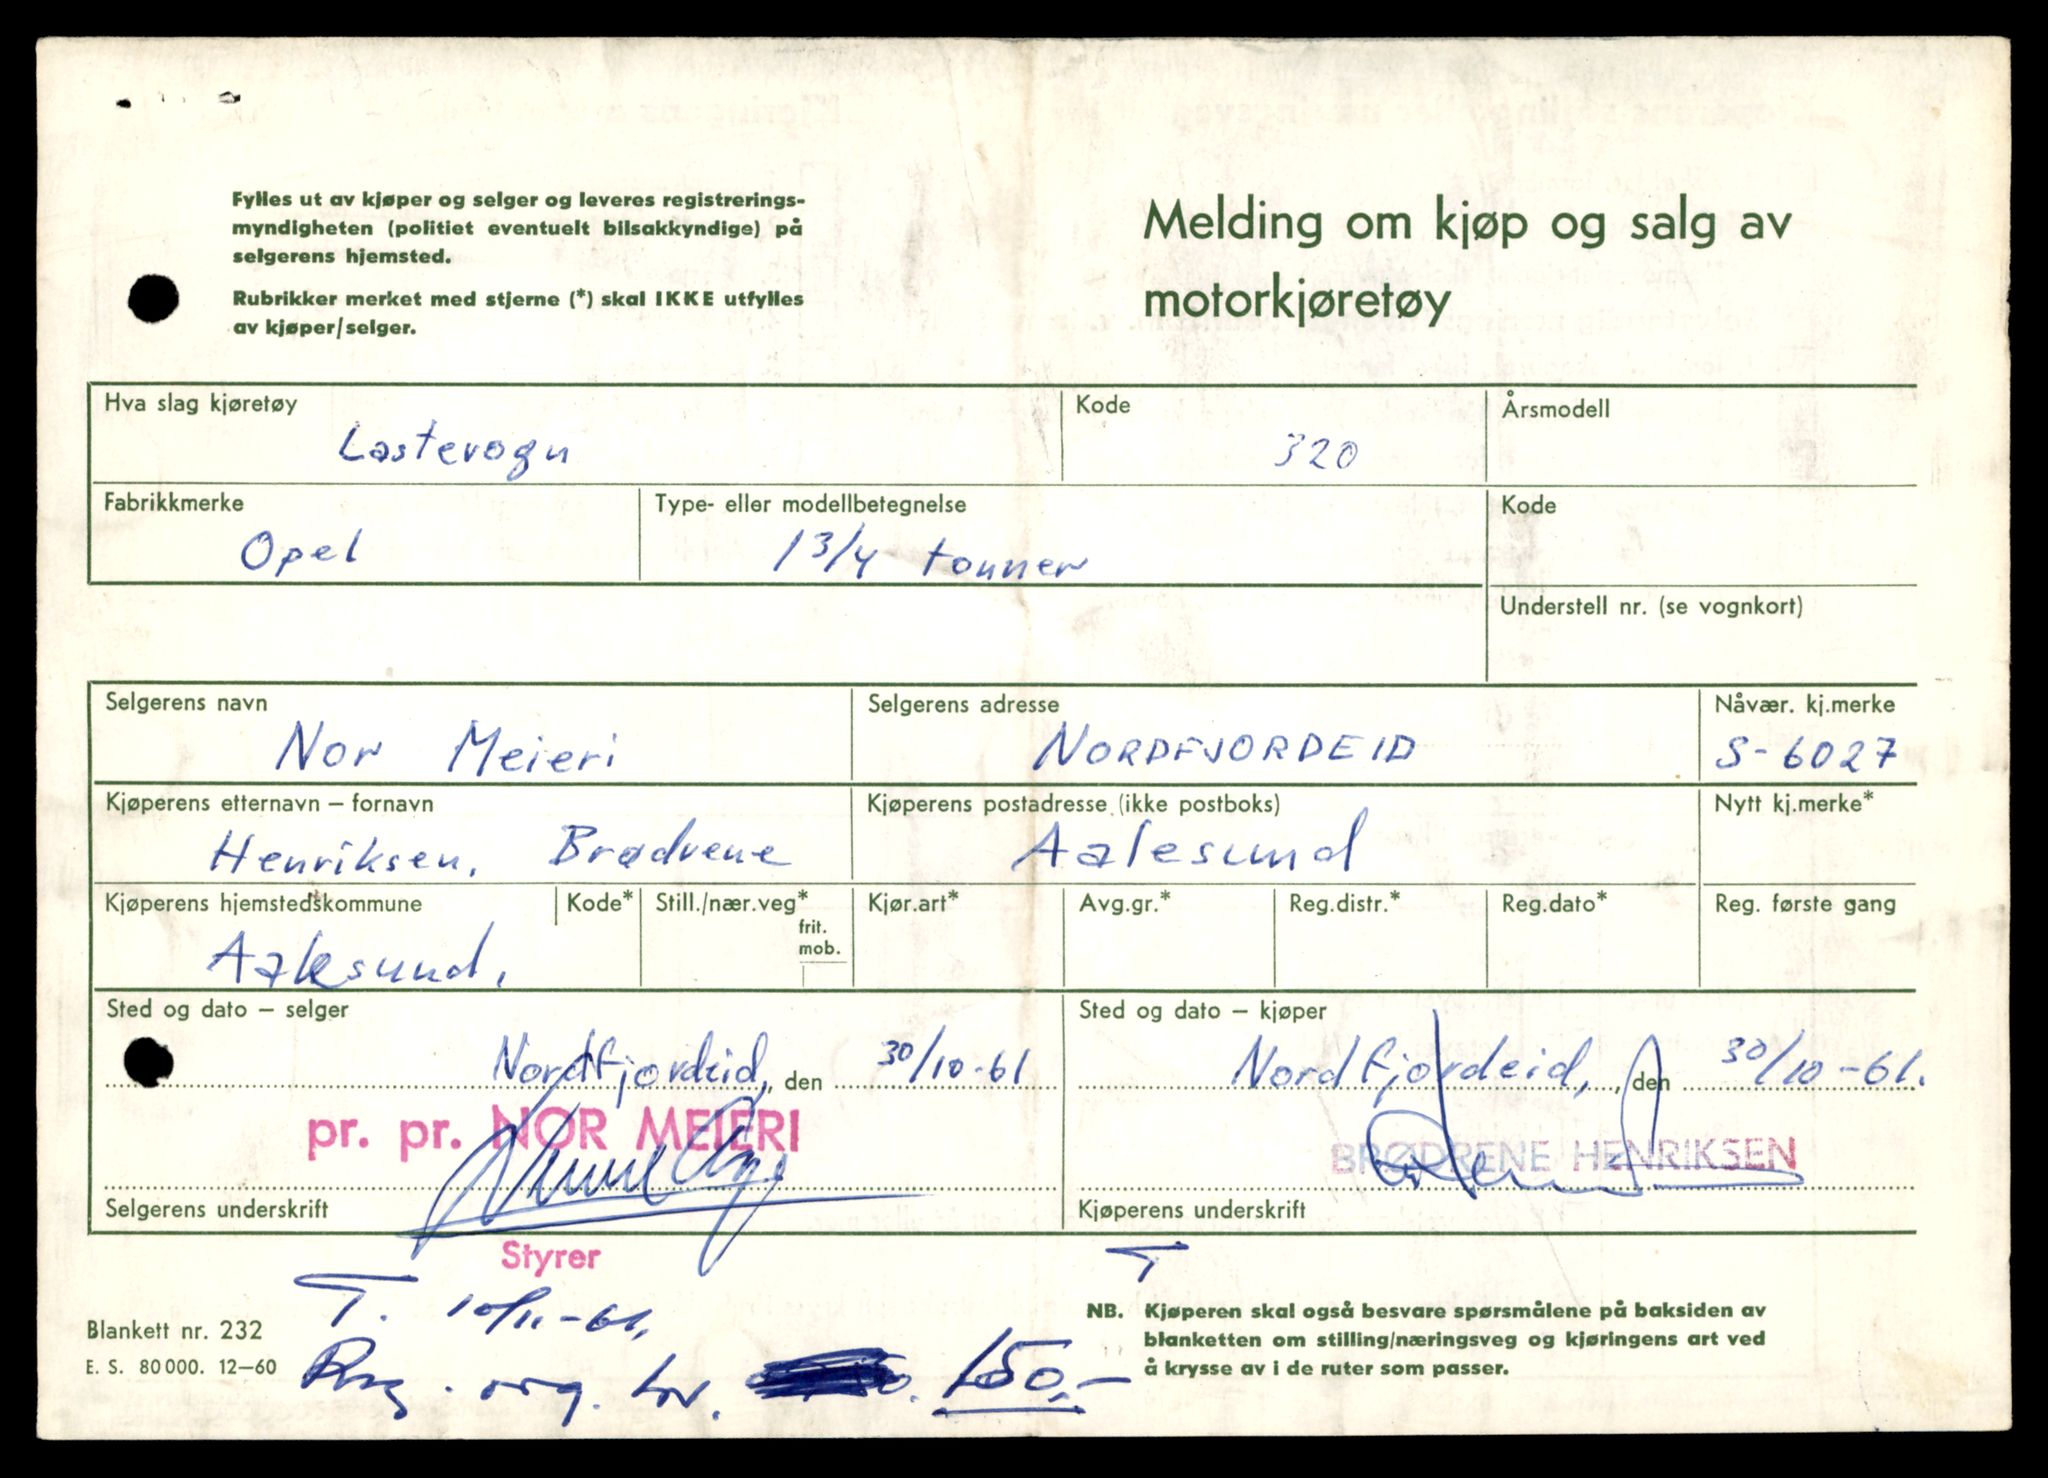 Fylles ut av kjøper og selger og leveres registrerings-
myndigheten (politiet eventuelt bilsakkyndige) på
selgerens hjemsted.
Rubrikker merket med stjerne (*) skal IKKE utfylles
av kjøper/selger.
Melding om kjøp og salg av
motorkjøretøy
Hva slag kjøretøy
Lastevogn
Kode
320
Årsmodell
Fabrikkmerke
Opel
Type- eller modellbetegnelse
1 3/4 tonner
Kode
Understell nr. (se vognkort)
Selgerens navn
Nor Meieri
Selgerens adresse
NORDFJORDEID
Nåvær. kj.merke
S-6027
Kjøperens etternavn – fornavn
Henriksen, Brødrene
Kjøperens postadresse (ikke postboks)
Aalesund
Nytt kj.merke*
Kjøperens hjemstedskommune
Aalesund,
Kode*
Still./nær.veg*
frit.
mob.
Kjør.art*
Avg.gr.*
Reg.distr.*
Reg.dato*
Reg. første gang
Sted og dato – selger
Nordfjordeid, den 30/10-61
pr. pr. NOR MEIERI
Selgerens underskrift
Styrer
Sted og dato – kjøper
Nordfjordeid, den 30/10-61.
BRØDRENE HENRIKSEN
Kjøperens underskrift
T
T. 10/11-61.
150,-
Blankett nr. 232
E. S. 80 000. 12–60
NB. Kjøperen skal også besvare spørsmålene på baksiden av
blanketten om stilling/næringsveg og kjøringens art ved
å krysse av i de ruter som passer.